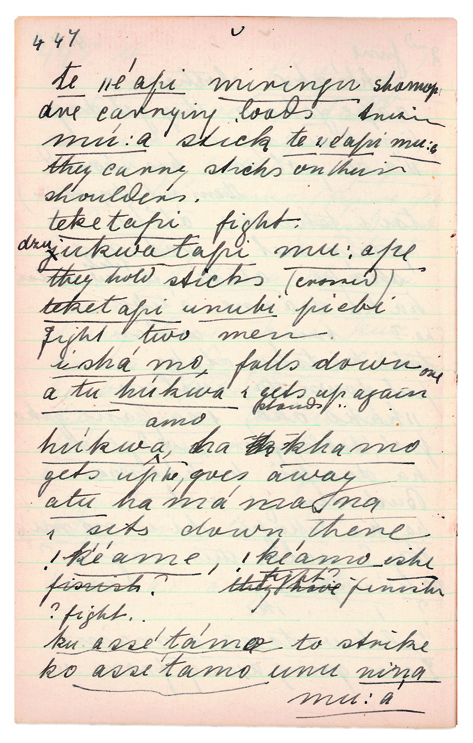 447
te ṇéapi miringu shomop.
are carrying loads
mú:a stick te ṇéapi mu:a
they carry sticks on their
shoulders.
teketapi fight.
dzukwatapi mu:ape
they hold sticks (crossed)
teketapi unubi piebi
Fight two men
ishá mo, falls down one
a tu húkwa gets up again
stands..
amo
húkwa, ha khamo
gets up, he, goes away
atu ha má ma na
sits down there
kéame, kéamo ishe
finish? they have fight? finish
? fight..
ku assé támo to strike
ko assétamo unu nina
mu:a